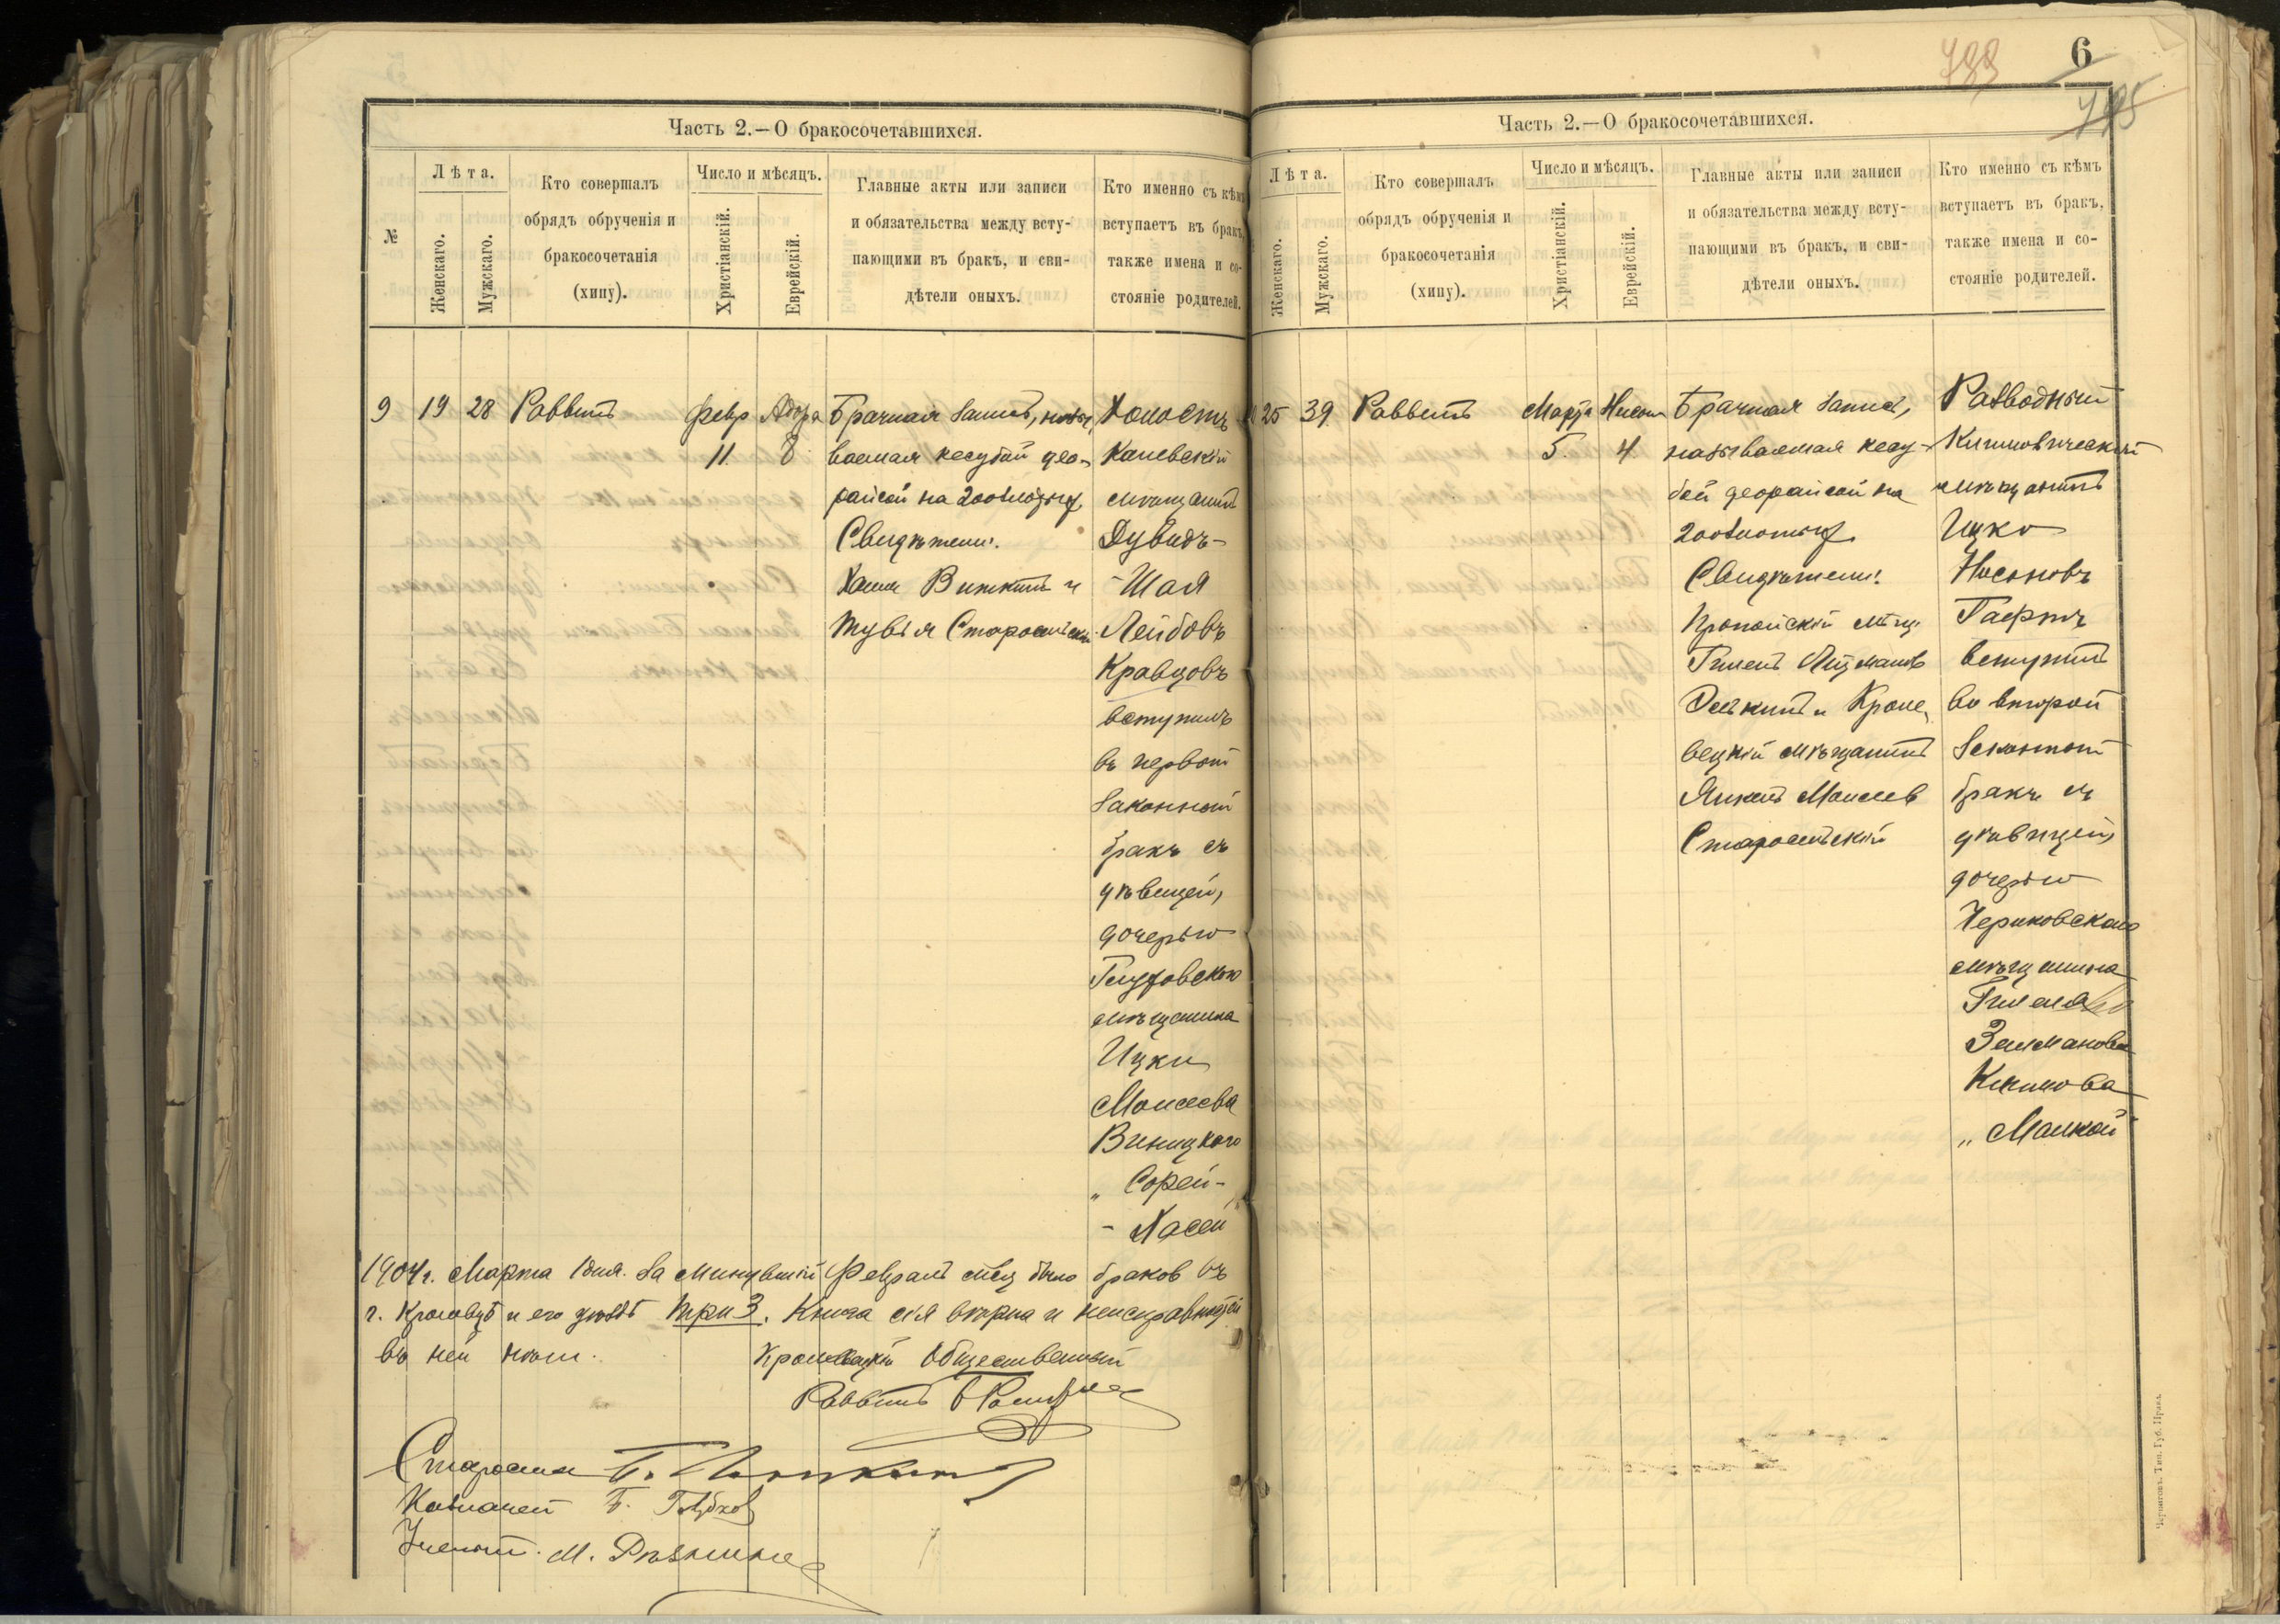 Часть 2.—О бракосочетавшихся.
№
Лѣта.
Женскаго.
Мужскаго.
Кто совершалъ
обрядъ обрученія и
бракосочетанія
(хипу).
Число и мѣсяцъ.
Христіанскій.
Еврейскій.
Главные акты или записи
и обязательства между всту-
пающими въ бракъ, и сви-
дѣтели оныхъ.
Кто именно съ кѣмъ
вступаетъ въ бракъ,
также имена и со-
стояніе родителей.
9
19
28
Раввинъ
Февр
11.
Адора
8
Брачная запись, назы-
ваемая кесубой део-
райсой на 200 злотых
Свидѣтели:
Хаим и
Тувья Старосельск.
Холостъ
Каневскій
мѣщанинъ
Дувидъ-
-Шая
Лейбовъ
Кравцовъ
вступилъ
въ первый
законный
бракъ съ
дѣвицей,
дочерью
Глуховского
мѣщанина
Ицки
Моисеева
Виницкого
„Сорей-
-Хасей"
1904 г. Марта 1 дня. За минувший Февраль мѣсц было браков въ
г. Кролевцѣ и его уѣздѣ три 3. Книга сія вѣрна и неисправностей
въ ней нѣтъ.
Кролевецкій Общественный
Раввинъ
Староста
Казначей Б.
Ученый. М.
6
Часть 2.—О бракосочетавшихся.
Лѣта.
Женскаго.
Мужскаго.
Кто совершалъ
обрядъ обрученія и
бракосочетанія
(хипу).
Число и мѣсяцъ.
Христіанскій.
Еврейскій.
Главные акты или записи
и обязательства между всту-
пающими въ бракъ, и сви-
дѣтели оныхъ.
Кто именно съ кѣмъ
вступаетъ въ бракъ,
также имена и со-
стояніе родителей.
25
39
Раввинъ
Марта
5.
Нисана
4
Брачная запись,
называемая кесу-
бой деорайсой на
200 злотых
Свидѣтели:
Пропойскій мѣщ.
Гилель
и Кроле-
вецкій мѣщанинъ
Янкель Моисеев
Старосельскій
Разводный
Климовический
мѣщанинъ
Ицко
Носоновъ
вступилъ
во второй
законный
бракъ съ
дѣвицей,
дочерью
Чериковского
мѣщанина
Гилеля
Залманова
„Малкой
Черниговъ. Тип. Губ. Правл.